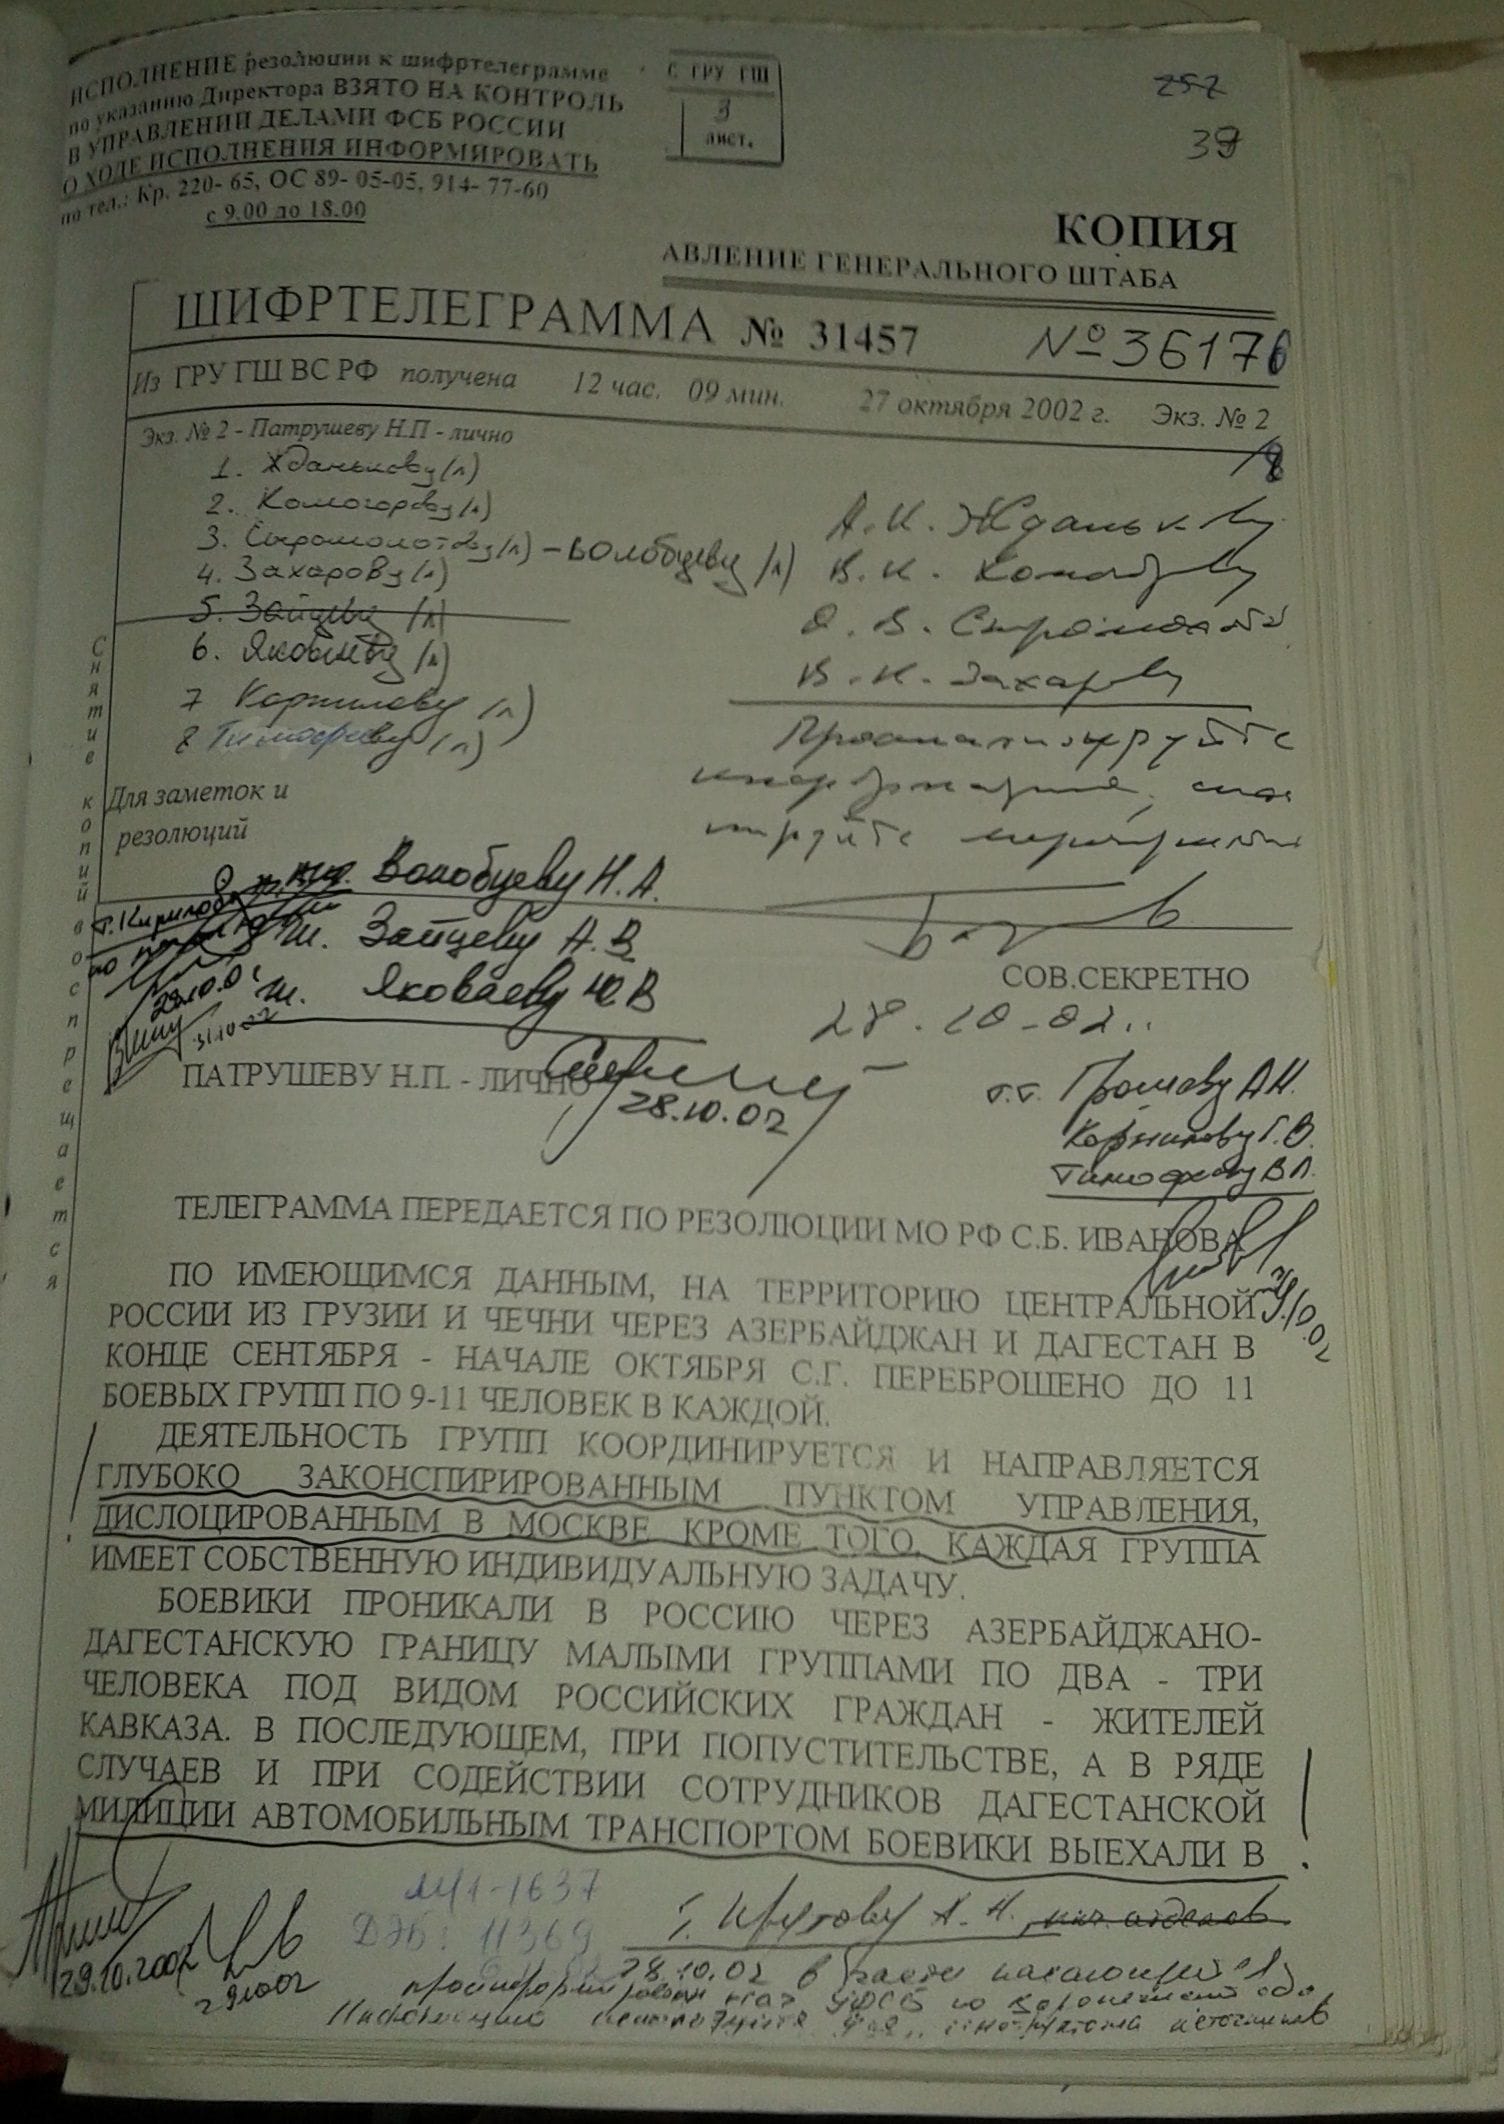 ИСПОЛНЕНИЕ резолюции к шифртелеграмме
по указанию Директора ВЗЯТО НА КОНТРОЛЬ
В УПРАВЛЕНИИ ДЕЛАМИ ФСБ РОССИИ
О ХОДЕ ИСПОЛНЕНИЯ ИНФОРМИРОВАТЬ
по тел.: Кр. 220- 65, ОС 89- 05-05, 914- 77-60
с 9.00 до 18.00
С ГРУ ГШ
3
лист.
257
39
КОПИЯ
АВЛЕНИЕ ГЕНЕРАЛЬНОГО ШТАБА
ШИФРТЕЛЕГРАММА № 31457 № 36176
Из ГРУ ГШ ВС РФ получена 12 час. 09 мин. 27 октября 2002 г. Экз. № 2
Экз. № 2 - Патрушеву Н.П - лично
1. Жданькову (л)
2. Комогорову (л)
3. Сыромолотову (л) – Волобуеву (л)
4. Захарову (л)
5. Зайцеву (л)
6. Яковлеву (л)
7 Корнилову (л)
8 Тимофееву (л)
А.И. Жданькову
В.И. Комогорову
О.В. Сыромолотову
В.И. Захарову
Проанализируйте
информацию,
мероприятия
Снятие копий воспрещается
Для заметок и
резолюций
Волобуеву Н.А.
т. Зайцеву А.В
т. Яковлеву Ю.В
т. Кирилову
29.10.02
31.10.02
СОВ.СЕКРЕТНО
28.10.02
ПАТРУШЕВУ Н.П. - ЛИЧНО
28.10.02
т.т. Громову А.Н.
Корнилову Г.В.
Тимофееву В.Л.
ТЕЛЕГРАММА ПЕРЕДАЕТСЯ ПО РЕЗОЛЮЦИИ МО РФ С.Б. ИВАНОВА
ПО ИМЕЮЩИМСЯ ДАННЫМ, НА ТЕРРИТОРИЮ ЦЕНТРАЛЬНОЙ
РОССИИ ИЗ ГРУЗИИ И ЧЕЧНИ ЧЕРЕЗ АЗЕРБАЙДЖАН И ДАГЕСТАН В
КОНЦЕ СЕНТЯБРЯ - НАЧАЛЕ ОКТЯБРЯ С.Г. ПЕРЕБРОШЕНО ДО 11
БОЕВЫХ ГРУПП ПО 9-11 ЧЕЛОВЕК В КАЖДОЙ.
ДЕЯТЕЛЬНОСТЬ ГРУПП КООРДИНИРУЕТСЯ И НАПРАВЛЯЕТСЯ
ГЛУБОКО ЗАКОНСПИРИРОВАННЫМ ПУНКТОМ УПРАВЛЕНИЯ,
ДИСЛОЦИРОВАННЫМ В МОСКВЕ. КРОМЕ ТОГО, КАЖДАЯ ГРУППА
ИМЕЕТ СОБСТВЕННУЮ ИНДИВИДУАЛЬНУЮ ЗАДАЧУ.
БОЕВИКИ ПРОНИКАЛИ В РОССИЮ ЧЕРЕЗ АЗЕРБАЙДЖАНО-
ДАГЕСТАНСКУЮ ГРАНИЦУ МАЛЫМИ ГРУППАМИ ПО ДВА - ТРИ
ЧЕЛОВЕКА ПОД ВИДОМ РОССИЙСКИХ ГРАЖДАН - ЖИТЕЛЕЙ
КАВКАЗА. В ПОСЛЕДУЮЩЕМ, ПРИ ПОПУСТИТЕЛЬСТВЕ, А В РЯДЕ
СЛУЧАЕВ И ПРИ СОДЕЙСТВИИ СОТРУДНИКОВ ДАГЕСТАНСКОЙ
МИЛИЦИИ АВТОМОБИЛЬНЫМ ТРАНСПОРТОМ БОЕВИКИ ВЫЕХАЛИ В
29.10.2002
291002
1-1637
ДЭБ: 11369
т. Крутову А.Н., нач. отделов
28.10.02 в части касающейся
проинформирован нач УФСБ по Воронежской обл.
источников